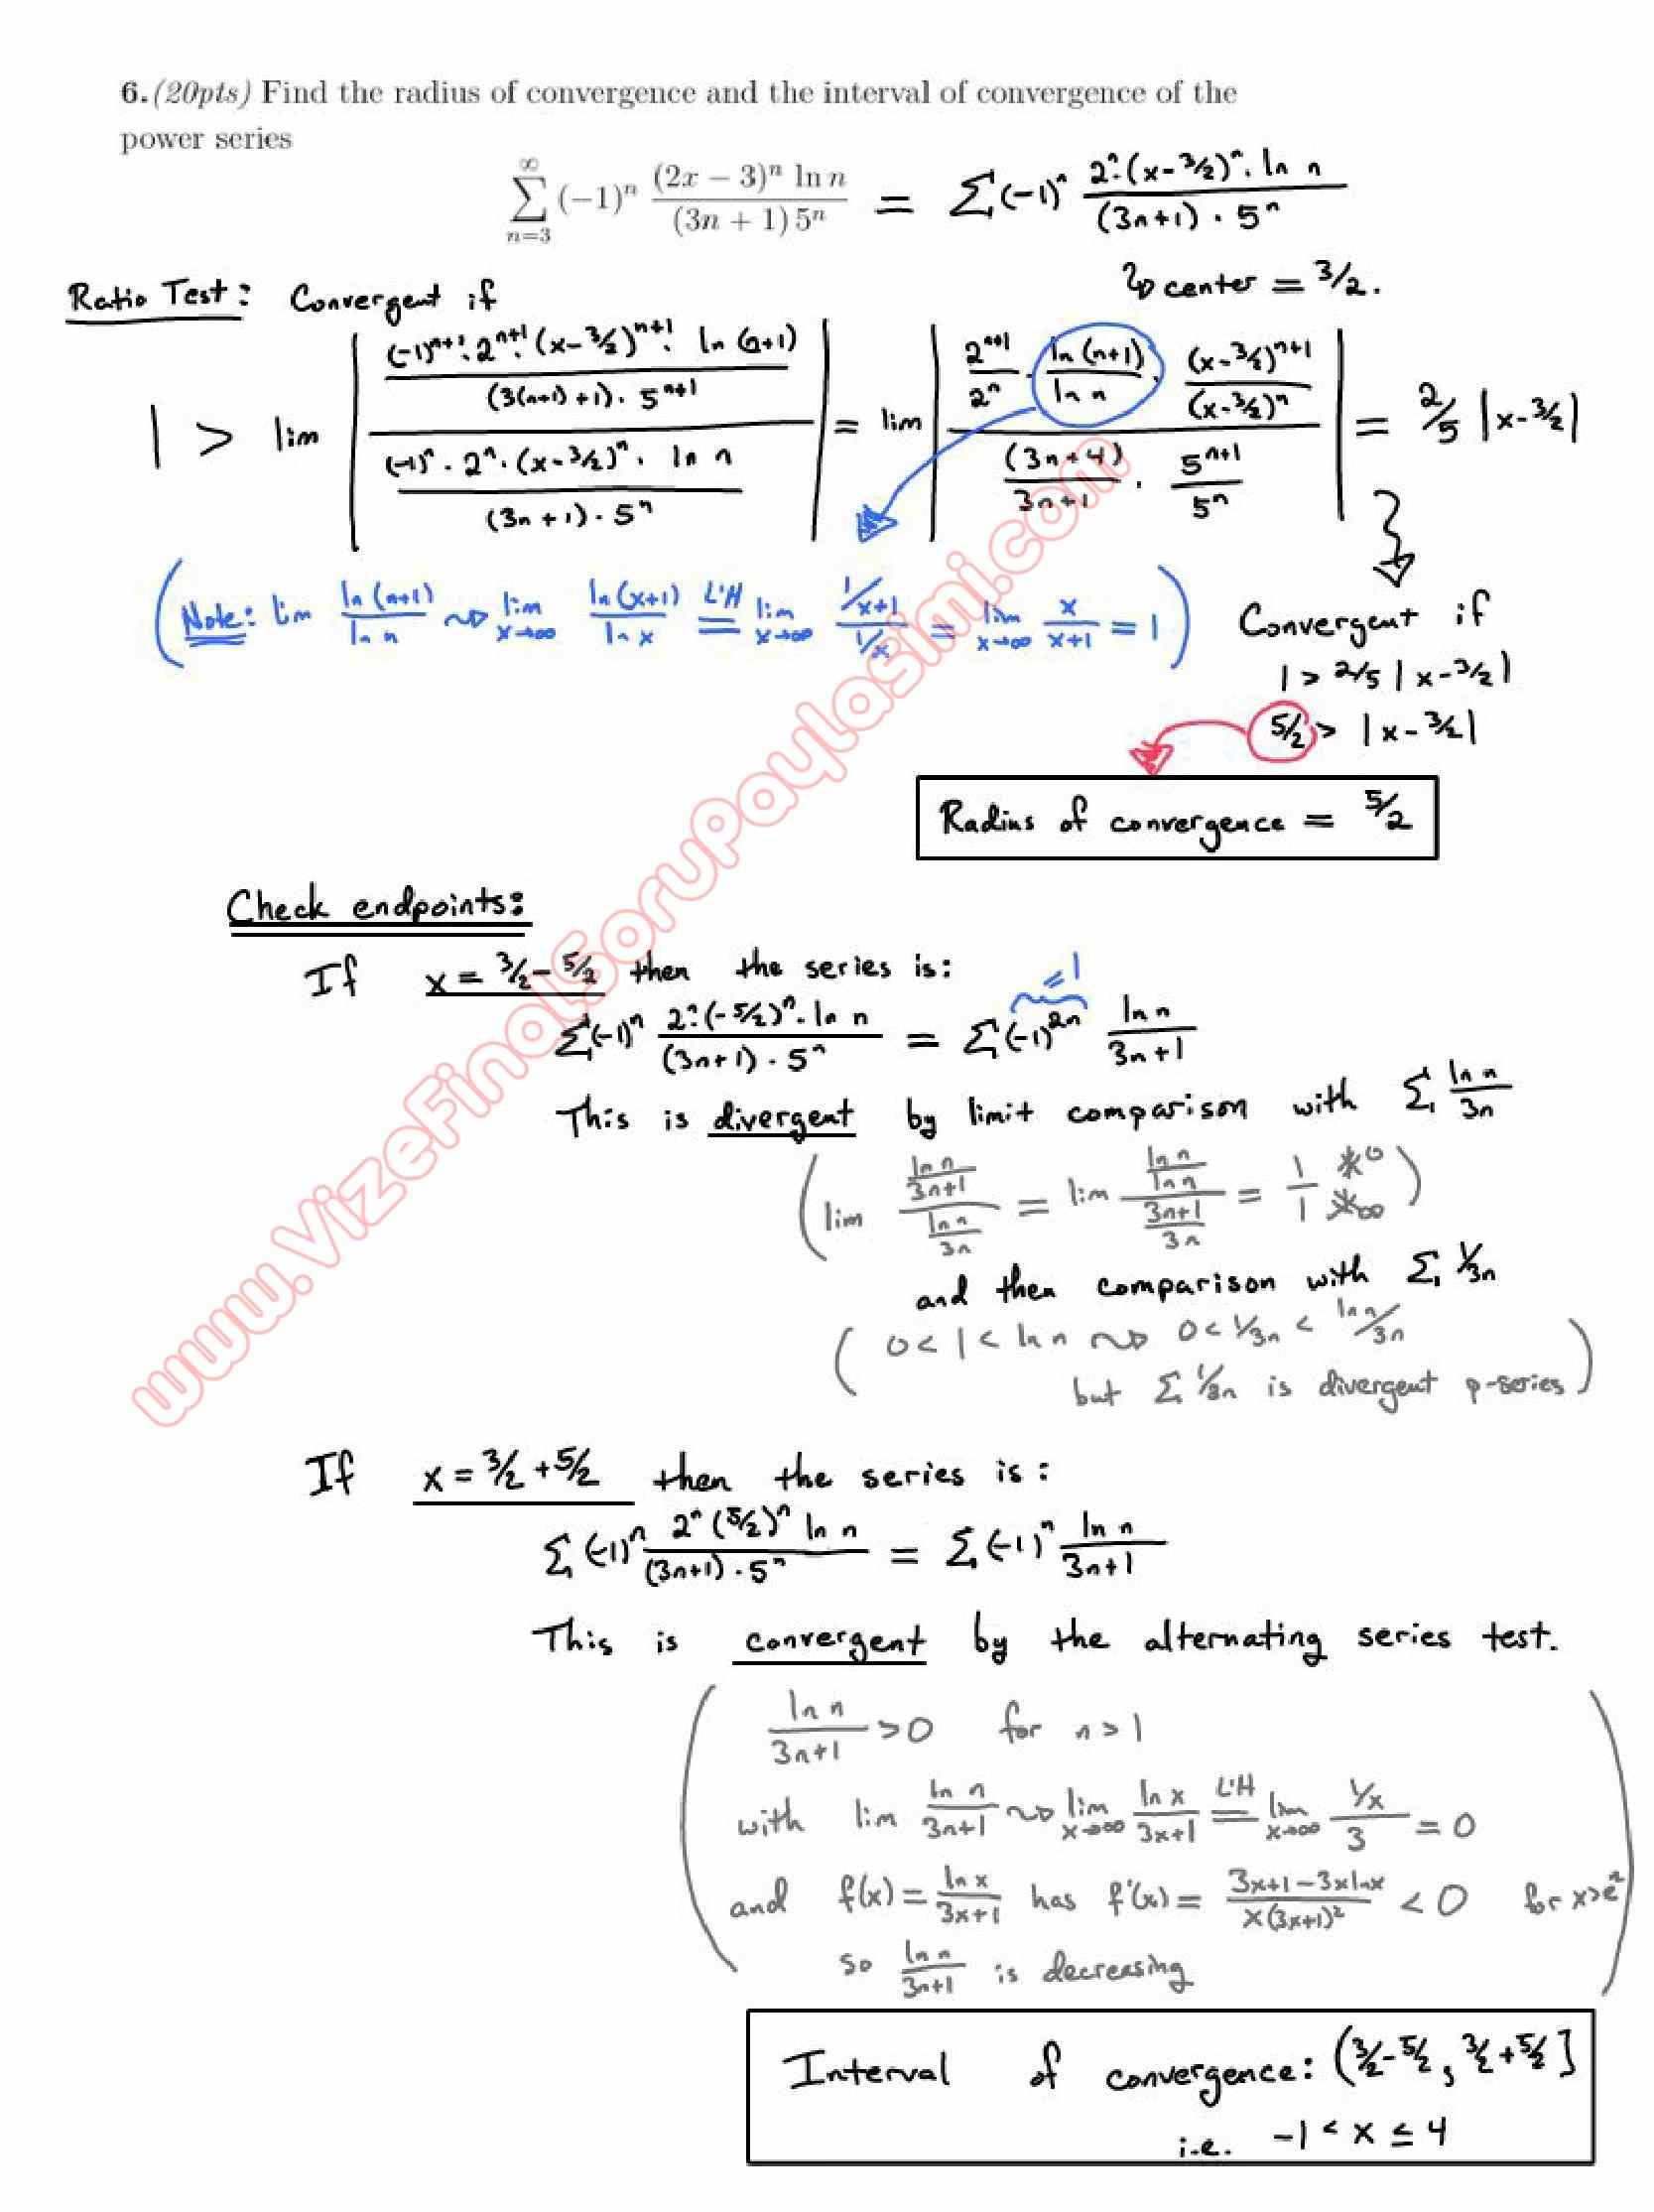 6.(20pts) Find the radius of convergence and the interval of convergence of the
power series
∑_{n=3}^{∞} (-1)^n \frac{(2x-3)^n ln n}{(3n+1) 5^n} = ∑(-1)^n \frac{2^n·(x-3/2)^n·ln n}{(3n+1)·5^n}
center = 3/2.
Ratio Test: Convergent if
1 > lim | \frac{\frac{(-1)^{n+1}·2^{n+1}·(x-3/2)^{n+1}·ln(n+1)}{(3(n+1)+1)·5^{n+1}}}{\frac{(-1)^n·2^n·(x-3/2)^n·ln n}{(3n+1)·5^n}} | = lim | \frac{\frac{2^{n+1}}{2^n}·\frac{ln(n+1)}{ln n}·\frac{(x-3/2)^{n+1}}{(x-3/2)^n}}{\frac{(3n+4)}{3n+1}·\frac{5^{n+1}}{5^n}} | = 2/5 |x-3/2|
(Note: lim \frac{ln(n+1)}{ln n} ⇝ lim_{x→∞} \frac{ln(x+1)}{ln x} \overset{L'H}{=} lim_{x→∞} \frac{1/x+1}{1/x} = lim_{x→∞} \frac{x}{x+1} = 1)
Convergent if
1 > 2/5 |x-3/2|
5/2 > |x-3/2|
Radius of convergence = 5/2
Check endpoints:
If x = 3/2 - 5/2 then the series is:
∑(-1)^n \frac{2^n·(-5/2)^n·ln n}{(3n+1)·5^n} = ∑ (-1)^{2n} \frac{ln n}{3n+1}
=1
This is divergent by limit comparison with ∑ \frac{ln n}{3n}
(lim \frac{\frac{ln n}{3n+1}}{\frac{ln n}{3n}} = lim \frac{\frac{ln n}{ln n}}{\frac{3n+1}{3n}} = \frac{1}{1} ≠0 ≠∞)
and then comparison with ∑ 1/3n
(0 < 1 < ln n ⇝ 0 < 1/3n < ln n/3n
but ∑ 1/3n is divergent p-series)
If x = 3/2 + 5/2 then the series is:
∑(-1)^n \frac{2^n (5/2)^n ln n}{(3n+1)·5^n} = ∑(-1)^n \frac{ln n}{3n+1}
This is convergent by the alternating series test.
(\frac{ln n}{3n+1} > 0 for n > 1
with lim \frac{ln n}{3n+1} ⇝ lim_{x→∞} \frac{ln x}{3x+1} \overset{L'H}{=} lim_{x→∞} \frac{1/x}{3} = 0
and f(x) = \frac{ln x}{3x+1} has f'(x) = \frac{3x+1-3x ln x}{x(3x+1)^2} < 0 for x > e^2
so \frac{ln n}{3n+1} is decreasing)
Interval of convergence: (3/2-5/2, 3/2+5/2]
i.e. -1 < x ≤ 4
www.VizeFinalSoruPaylasimi.com